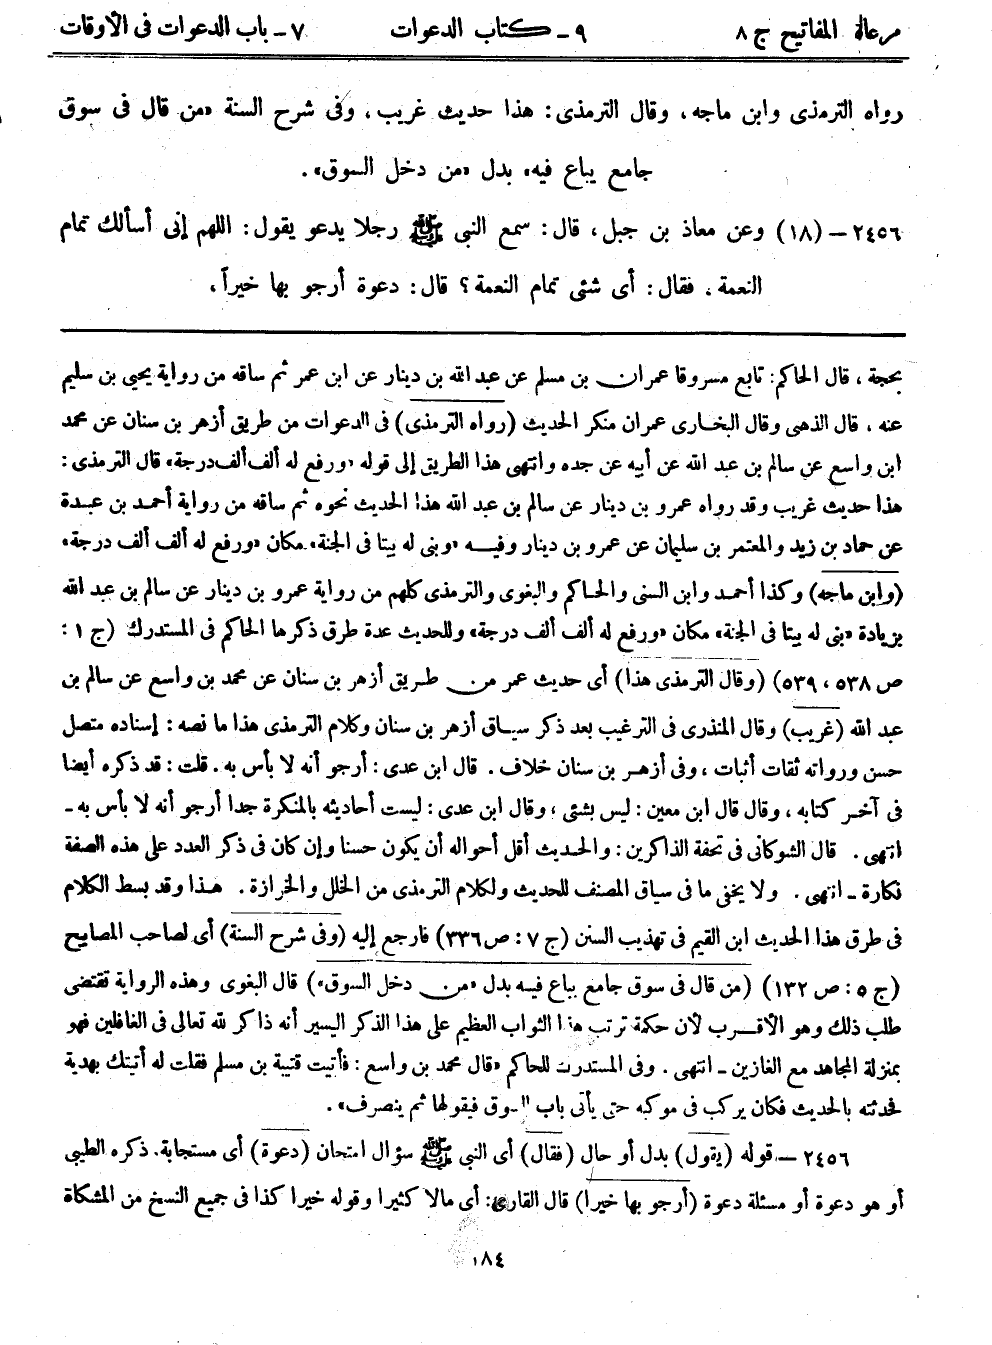 مرعاة المفاتيح ج ٨ ٩ - كتاب الدعوات ٧ - باب الدعوات فى الأوقات
رواه الترمذى وابن ماجه، وقال الترمذى: هذا حديث غريب، وفى شرح السنة «من قال فى سوق
جامع يباع فيه» بدل «من دخل السوق».
٢٤٥٦ – (١٨) وعن معاذ بن جبل، قال: سمع النبى ﷺ رجلا يدعو يقول: اللهم إنى أسألك تمام
النعمة. فقال: أى شئى تمام النعمة؟ قال: دعوة أرجو بها خيراً،
بحجة، قال الحاكم: تابع مسروقا عمران بن مسلم عن عبد الله بن دينار عن ابن عمر ثم ساقه من رواية يحيى بن سليم
عنه، قال الذهى وقال البخارى عمران منكر الحديث (رواه الترمذى) فى الدعوات من طريق أزهر بن سنان عن محمد
ابن واسع عن سالم بن عبد الله عن أبيه عن جده وانتهى هذا الطريق إلى قوله «ورفع له ألف ألف درجة» قال الترمذى:
هذا حديث غريب وقد رواه عمرو بن دينار عن سالم بن عبد الله هذا الحديث نحوه ثم ساقه من رواية أحمد بن عبدة
عن حماد بن زيد والمعتمر بن سليمان عن عمرو بن دينار وفيه «وبنى له بيتا فى الجنة» مكان «ورفع له ألف ألف درجة»
(وابن ماجه) وكذا أحمد وابن السنى والحاكم والبغوى والترمذى كلهم من رواية عمرو بن دينار عن سالم بن عبد الله
بزيادة «بنى له بيتا فى الجنة» مكان «ورفع له ألف ألف درجة» وللحديث عدة طرق ذكرها الحاكم فى المستدرك (ج ١:
ص ٥٣٨، ٥٣٩) (وقال الترمذى هذا) أى حديث عمر من طريق أزهر بن سنان عن محمد بن واسع عن سالم بن
عبد الله (غريب) وقال المنذرى فى الترغيب بعد ذكر سياق أزهر بن سنان وكلام الترمذى هذا ما نصه: إسناده متصل
حسن ورواته ثقات أثبات، وفى أزهر بن سنان خلاف. قال ابن عدى: أرجو أنه لا بأس به. قلت: قد ذكره أيضا
فى آخر كتابه، وقال قال ابن معين: ليس بشئى، وقال ابن عدى: ليست أحاديثه بالمنكرة جدا أرجو أنه لا بأس به -
انتهى. قال الشوكانى فى تحفة الذاكرين: والحديث أقل أحواله أن يكون حسنا وإن كان فى ذكر العدد على هذه الصفة
نكارة - انتهى. ولا يخفى ما فى سياق المصنف للحديث ولكلام الترمذى من الخلل والخرازة. هذا وقد بسط الكلام
فى طرق هذا الحديث ابن القيم فى تهذيب السنن (ج ٧: ص ٣٣٦) فارجع إليه (وفى شرح السنة) أى لصاحب المصابيح
(ج ٥: ص ١٣٢) (من قال فى سوق جامع يباع فيه بدل «من دخل السوق») قال البغوى وهذه الرواية تقتضى
طلب ذلك وهو الأقرب لأن حكمة ترتب هذا الثواب العظيم على هذا الذكر اليسير أنه ذاكر لله تعالى فى الغافلين فهو
بمنزلة المجاهد مع الغازين - انتهى. وفى المستدرك للحاكم «قال محمد بن واسع: فأتيت قتيبة بن مسلم فقلت له أتيتك بهدية
فحدثته بالحديث فكان يركب فى موكبه حتى يأتى باب السوق فيقولها ثم ينصرف».
٢٤٥٦ – قوله (يقول) بدل أو حال (فقال) أى النبى ﷺ سؤال امتحان (دعوة) أى مستجابة. ذكره الطيبى
أو هو دعوة أو مسئلة دعوة (أرجو بها خيرا) قال القارى: أى مالا كثيرا وقوله خيرا كذا فى جميع النسخ من المشكاة
١٨٤